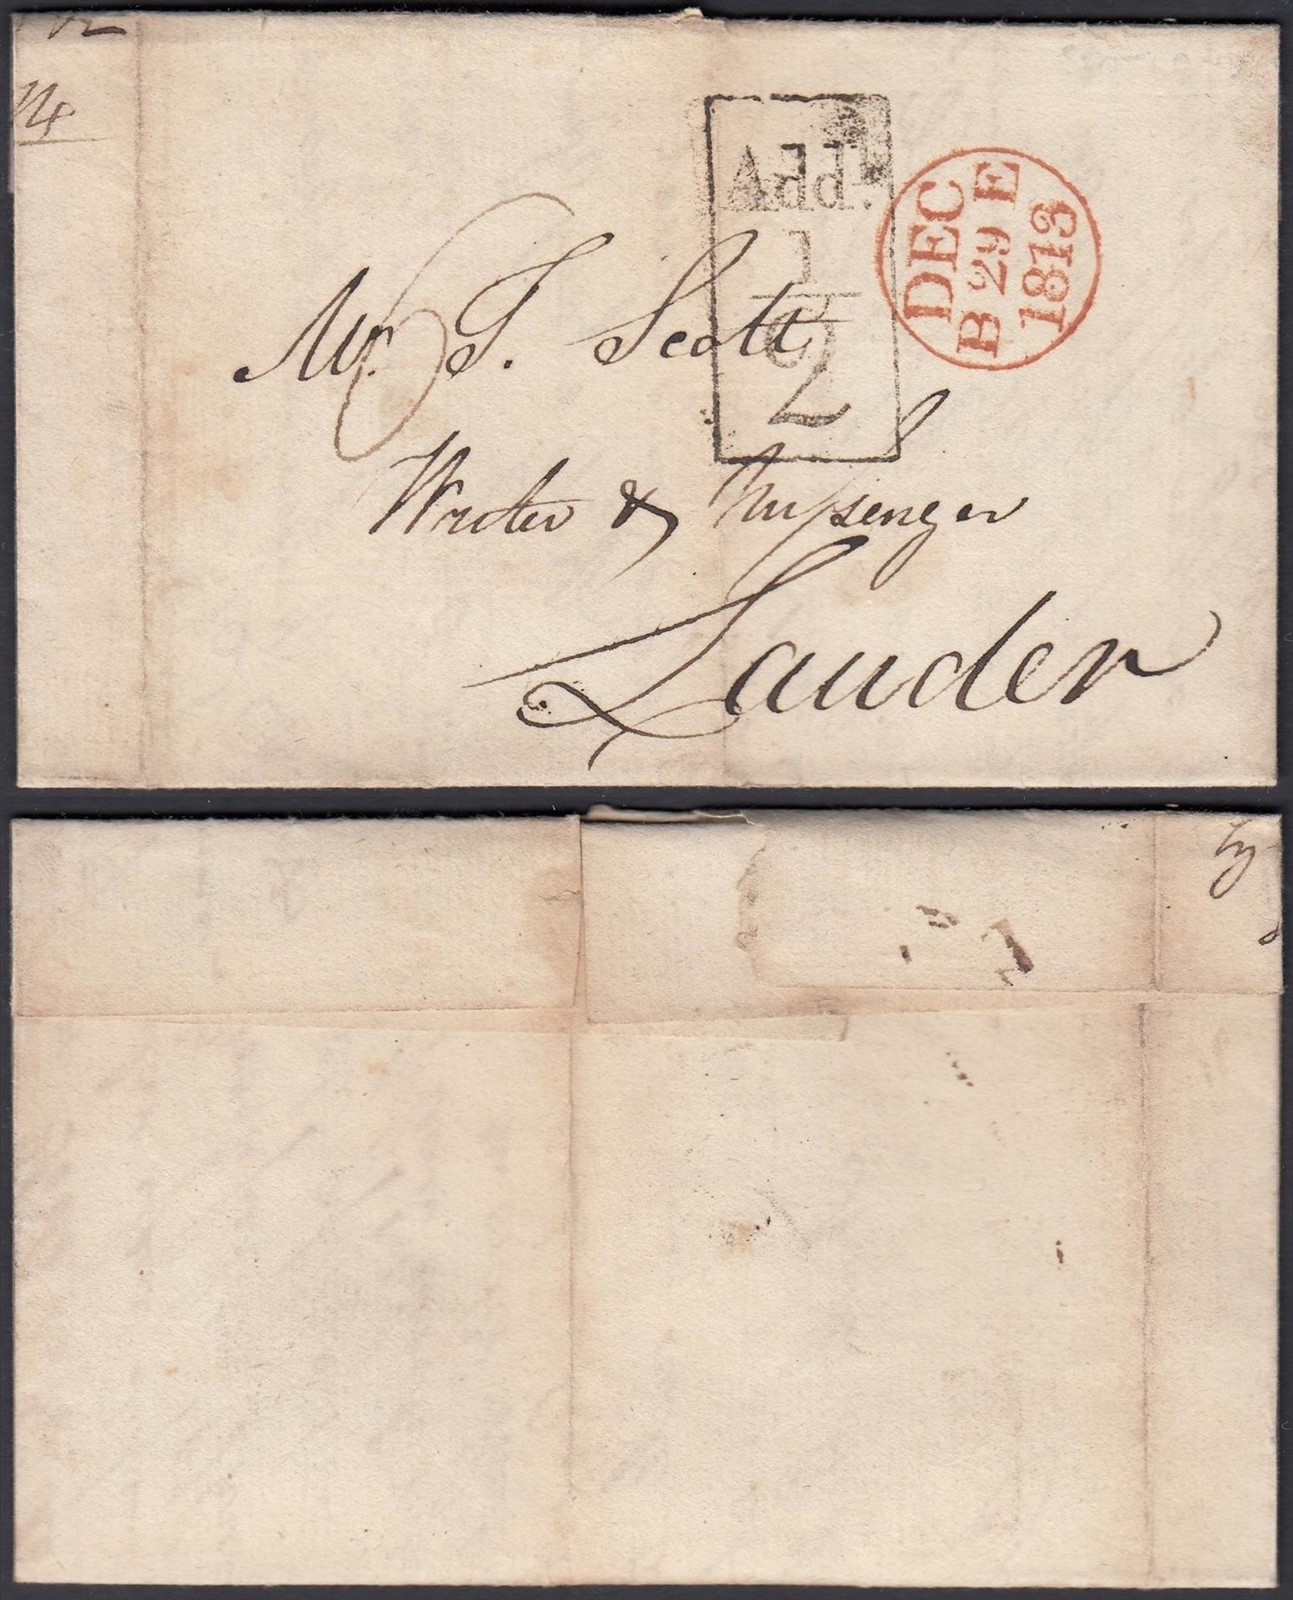 14
Addl.
1
2
DEC
B 29 E
1813
6
Mr. T. Scott
Writer & Messenger
Lauder